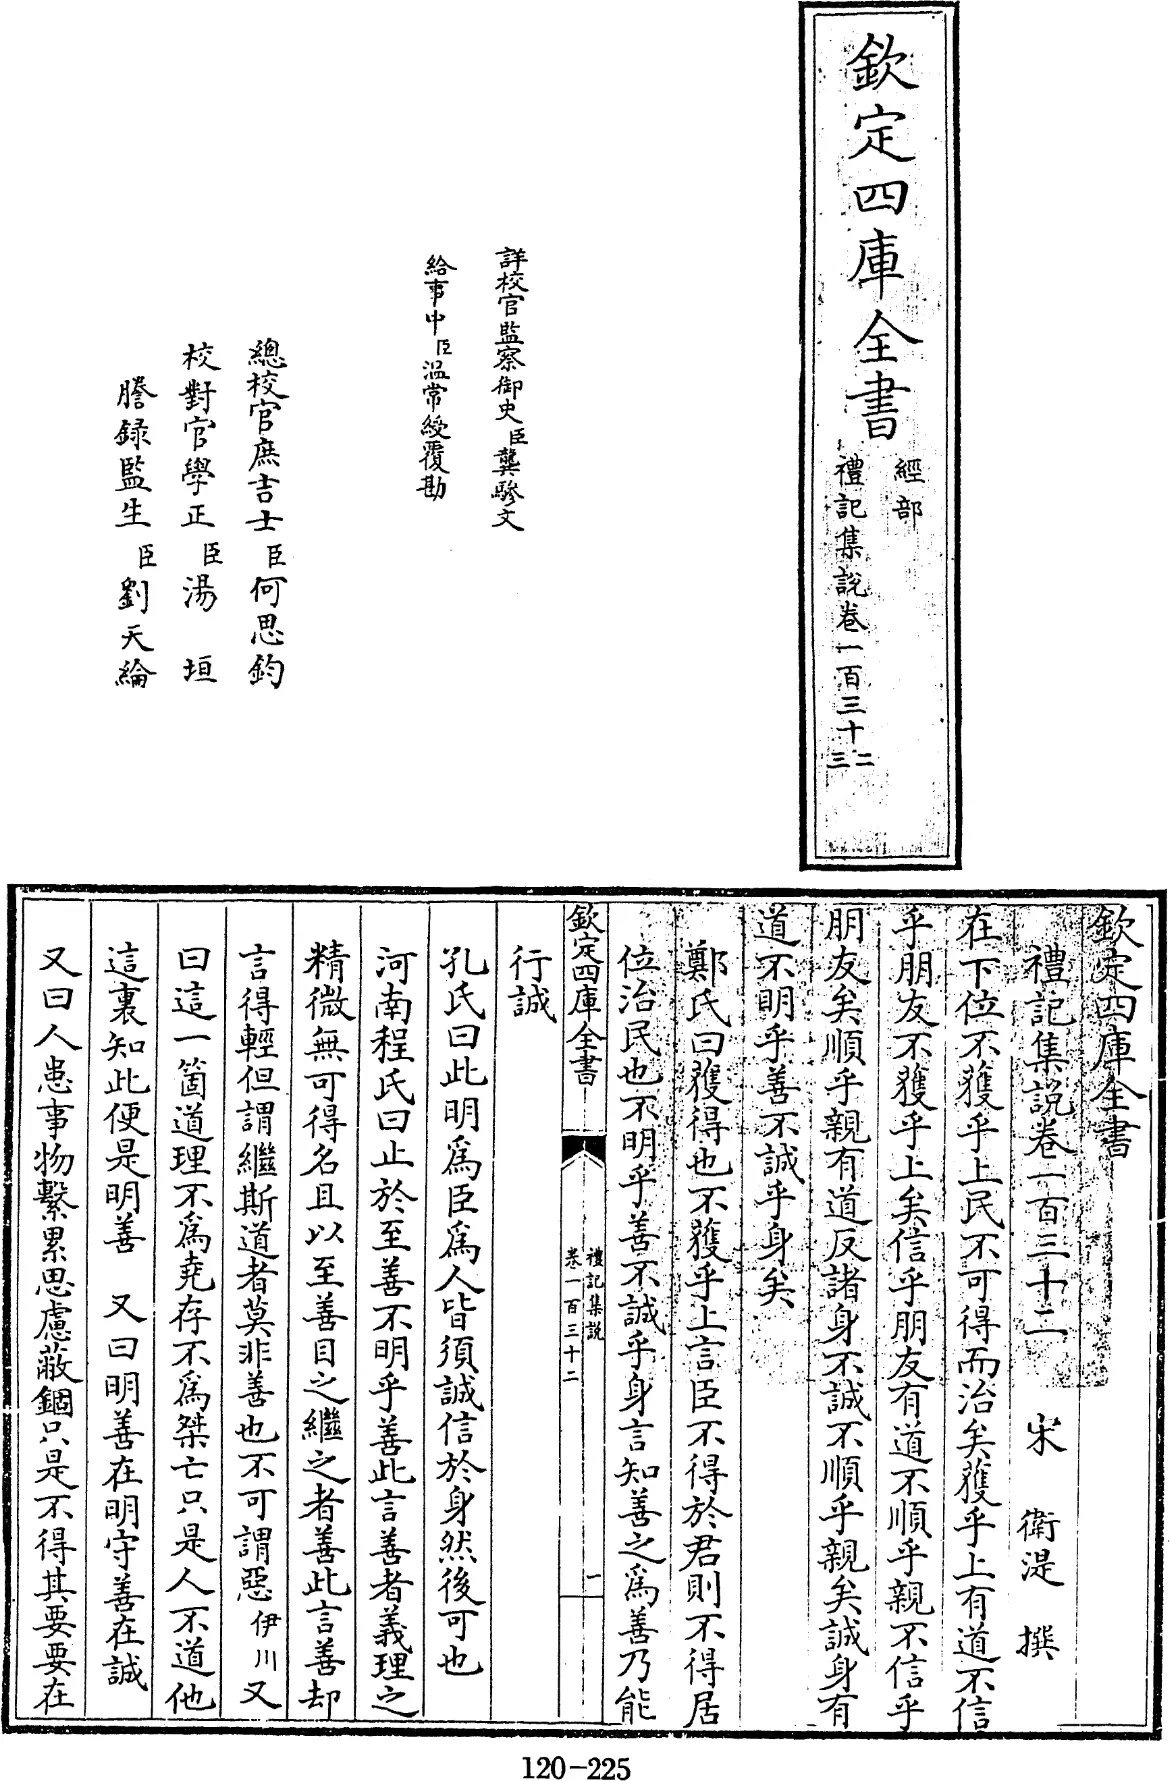 欽定四庫全書
經部
禮記集說卷一百三十二
三
詳校官監察御史臣龔驂文
給事中臣溫常綬覆勘
總校官庶吉士臣何思鈞
校對官學正臣湯垣
謄錄監生臣劉天綸
欽定四庫全書
禮記集說卷一百三十二 宋 衛湜 撰
在下位不獲乎上民不可得而治矣獲乎上有道不信
乎朋友不獲乎上矣信乎朋友有道不順乎親不信乎
朋友矣順乎親有道反諸身不誠不順乎親矣誠身有
道不明乎善不誠乎身矣
鄭氏曰獲得也不獲乎上言臣不得於君則不得居
位治民也不明乎善不誠乎身言知善之為善乃能
欽定四庫全書
禮記集說
卷一百三十二
一
行誠
孔氏曰此明為臣為人皆須誠信於身然後可也
河南程氏曰止於至善不明乎善此言善者義理之
精微無可得名且以至善目之繼之者善此言善却
言得輕但謂繼斯道者莫非善也不可謂惡伊川又
曰這一箇道理不為堯存不為桀亡只是人不道他
這裏知此便是明善 又曰明善在明守善在誠
又曰人患事物繫累思慮蔽錮只是不得其要要在
120-225